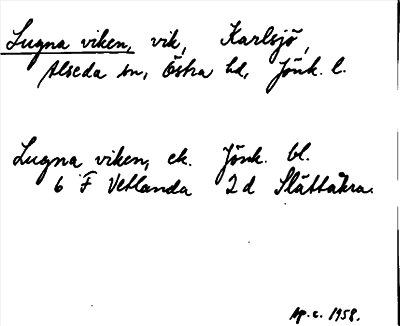 Lugna viken, vik, Karlsjö,
Alseda sn, Östra hd, Jönk. l.
Lugna viken, ek. Jönk. bl.
6 F Vetlanda 2 d Slättåkra.
Ap. c. 1958.